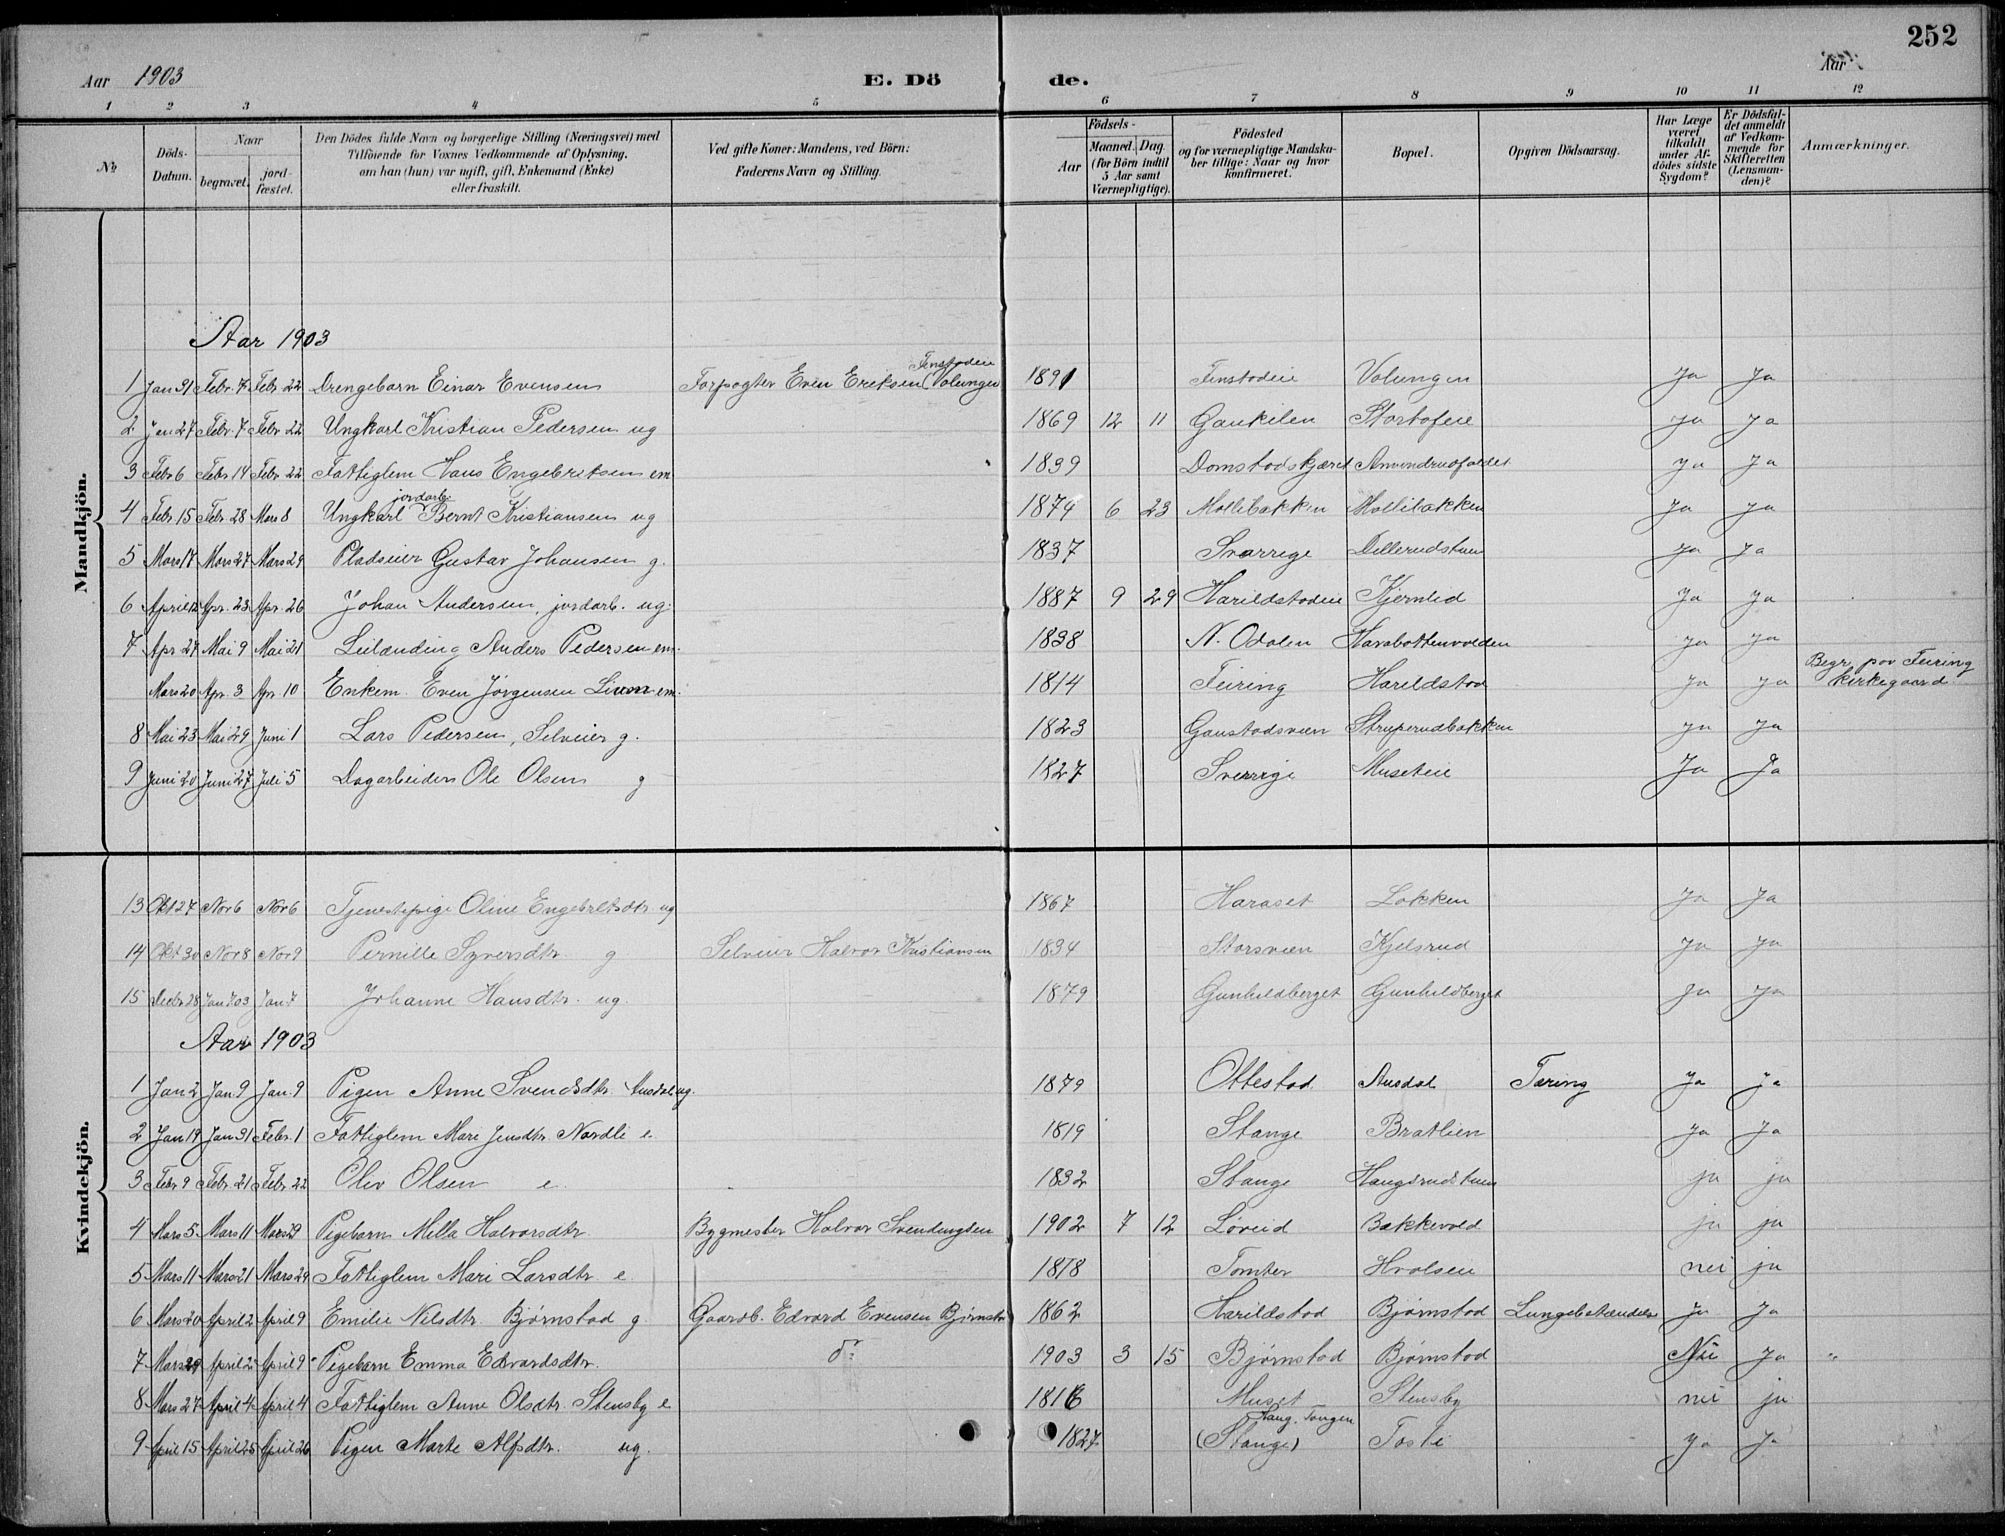 252
Aar 1903 E. Döde. Aar
1 2 3 4 5 6 7 8 9 10 11 12
№ Döds-Datum. Naar begravet. jordfæstet. Den Dödes fulde Navn og borgerlige Stilling (Næringsvei) med Tilföiende for Voxnes Vedkommende af Oplysning, om han (hun) var ugift, gift, Enkemand (Enke) eller fraskilt. Ved gifte Koner: Mandens, ved Börn: Faderens Navn og Stilling. Födsels- Aar Maaned. Dag. (for Börn indtil 5 Aar samt Værnepligtige). Födested og for værnepligtige Mandskaber tillige: Naar og hvor konfirmeret. Bopæl. Opgiven Dödsaarsag. Har Læge været tilkaldt under Afdödes sidste Sygdom? Er Dödsfaldet anmeldt af Vedkommende for Skifteretten (Lensmanden)? Anmærkninger.
Mandkjön.
Aar 1903
1 Jan 31 Febr. 7 Febr 22 Drengebarn Einar Evensen Forpagter Even Eriksen (Volungen Finstadeie 1891 Finstadeie Volungen Ja Ja
2 Jan 27 Febr. 7 Febr 22 Ungkarl Kristian Pedersen ug 1869 12 11 Gaukilen Stortofeie ja Ja
3 Febr 6 Febr 14 Febr 22 Fattiglem Hans Engebretsen em 1839 Domstadskjæret ja Ja
4 Febr 15 Febr. 28 Mars 8 Ungkarl jordarb. Bernt Kristiansen ug 1874 6 23 Mollibakken Mollibakken Ja ja
5 Mars 17 Mars 27 Mars 29 Pladseier Gustav Johansen g. 1837 Sverrige Dellerudstuen Ja Ja
6 April 12 Apr. 23 Apr. 26 Johan Andersen, jordarb. ug. 1887 9 29 Harildstadeie Kjernlid Ja ja
7 Apr 27 Mai 9 Mai 21 Leilænding Anders Pedersen em. 1838 N. Odalen Harabottenvolden ja ja
Mars 20 Apr. 3 Apr. 10 Enkem. Even Jørgensen Livon em. 1814 Feiring Harildstad ja ja Begr. paa Feiring Kirkegaard
8 Mai 23 Mai 29 Juni 1 Lars Pedersen, Selveier g. 1823 Gaustadsveen Struperudbakken ja ja
9 Juni 20 Juni 27 Juli 5 Dagarbeider Ole Olsen g 1827 Sverrige Museteie Ja Ja
Kvindekjön.
13 Okt 27 Nov 6 Nov 6 Tjenestepige Oline Engebretsdtr ug 1867 Haraset Løkken Ja Ja
14 Okt 30 Nov 8 Nov 9 Pernille Syversdtr g Selveier Halvor Kristiansen 1834 Storsveen Kjelsrud Ja Ja
15 Decbr 28 Jan 7 03 Jan. 7 Johanne Hansdtr. ug. 1879 Gunhildberget Gunhildberget Ja Ja
Aar 1903
1 Jan 2 Jan 9 Jan. 9 Pigen Anne Svendsdtr Ausdal ug. 1879 Ottestad Ausdal Tæring Ja Ja
2 Jan 19 Jan 31 Febr. 1 Fattiglem Mari Jensdtr. Nordli e. 1819 Stange Bratlien ja Ja
3 Febr 9 Febr. 21 Febr. 22 Oliv Olsen e. 1832 Stange Haugsrudstuen ja ja
4 Mars 5 Mars 11 Mars 29 Pigebarn Milla Halvorsdtr. Bygmester Halvor Svendungsen 1902 7 12 Løveid Bakkevold ja ja
5 Mars 11 Mars 21 Mars 29 Fattiglem Mari Larsdtr e. 1818 Tomter Hvalseie nei ja
6 Mars 20 April 2 April 9 Emilie Nilsdtr. Bjørnstad g. Gaardb. Edvard Evensen Bjørnstad 1862 Harildstad Bjørnstad Lungebetændelse Ja Ja
7 Mars 29 April 2 April 9 Pigebarn Emma Edvardsdtr. do 1903 3 15 Bjørnstad Bjørnstad Nei Ja "
8 Mars 27 April 4 April 4 Fattiglem Anne Olsdtr. Stensby e 1816 Muset Stensby nei ja
9 April 15 April 25 April 26 Pigen Marte Alfsdtr. ug. 1827 Tangen (Stange) Toste Ja Ja